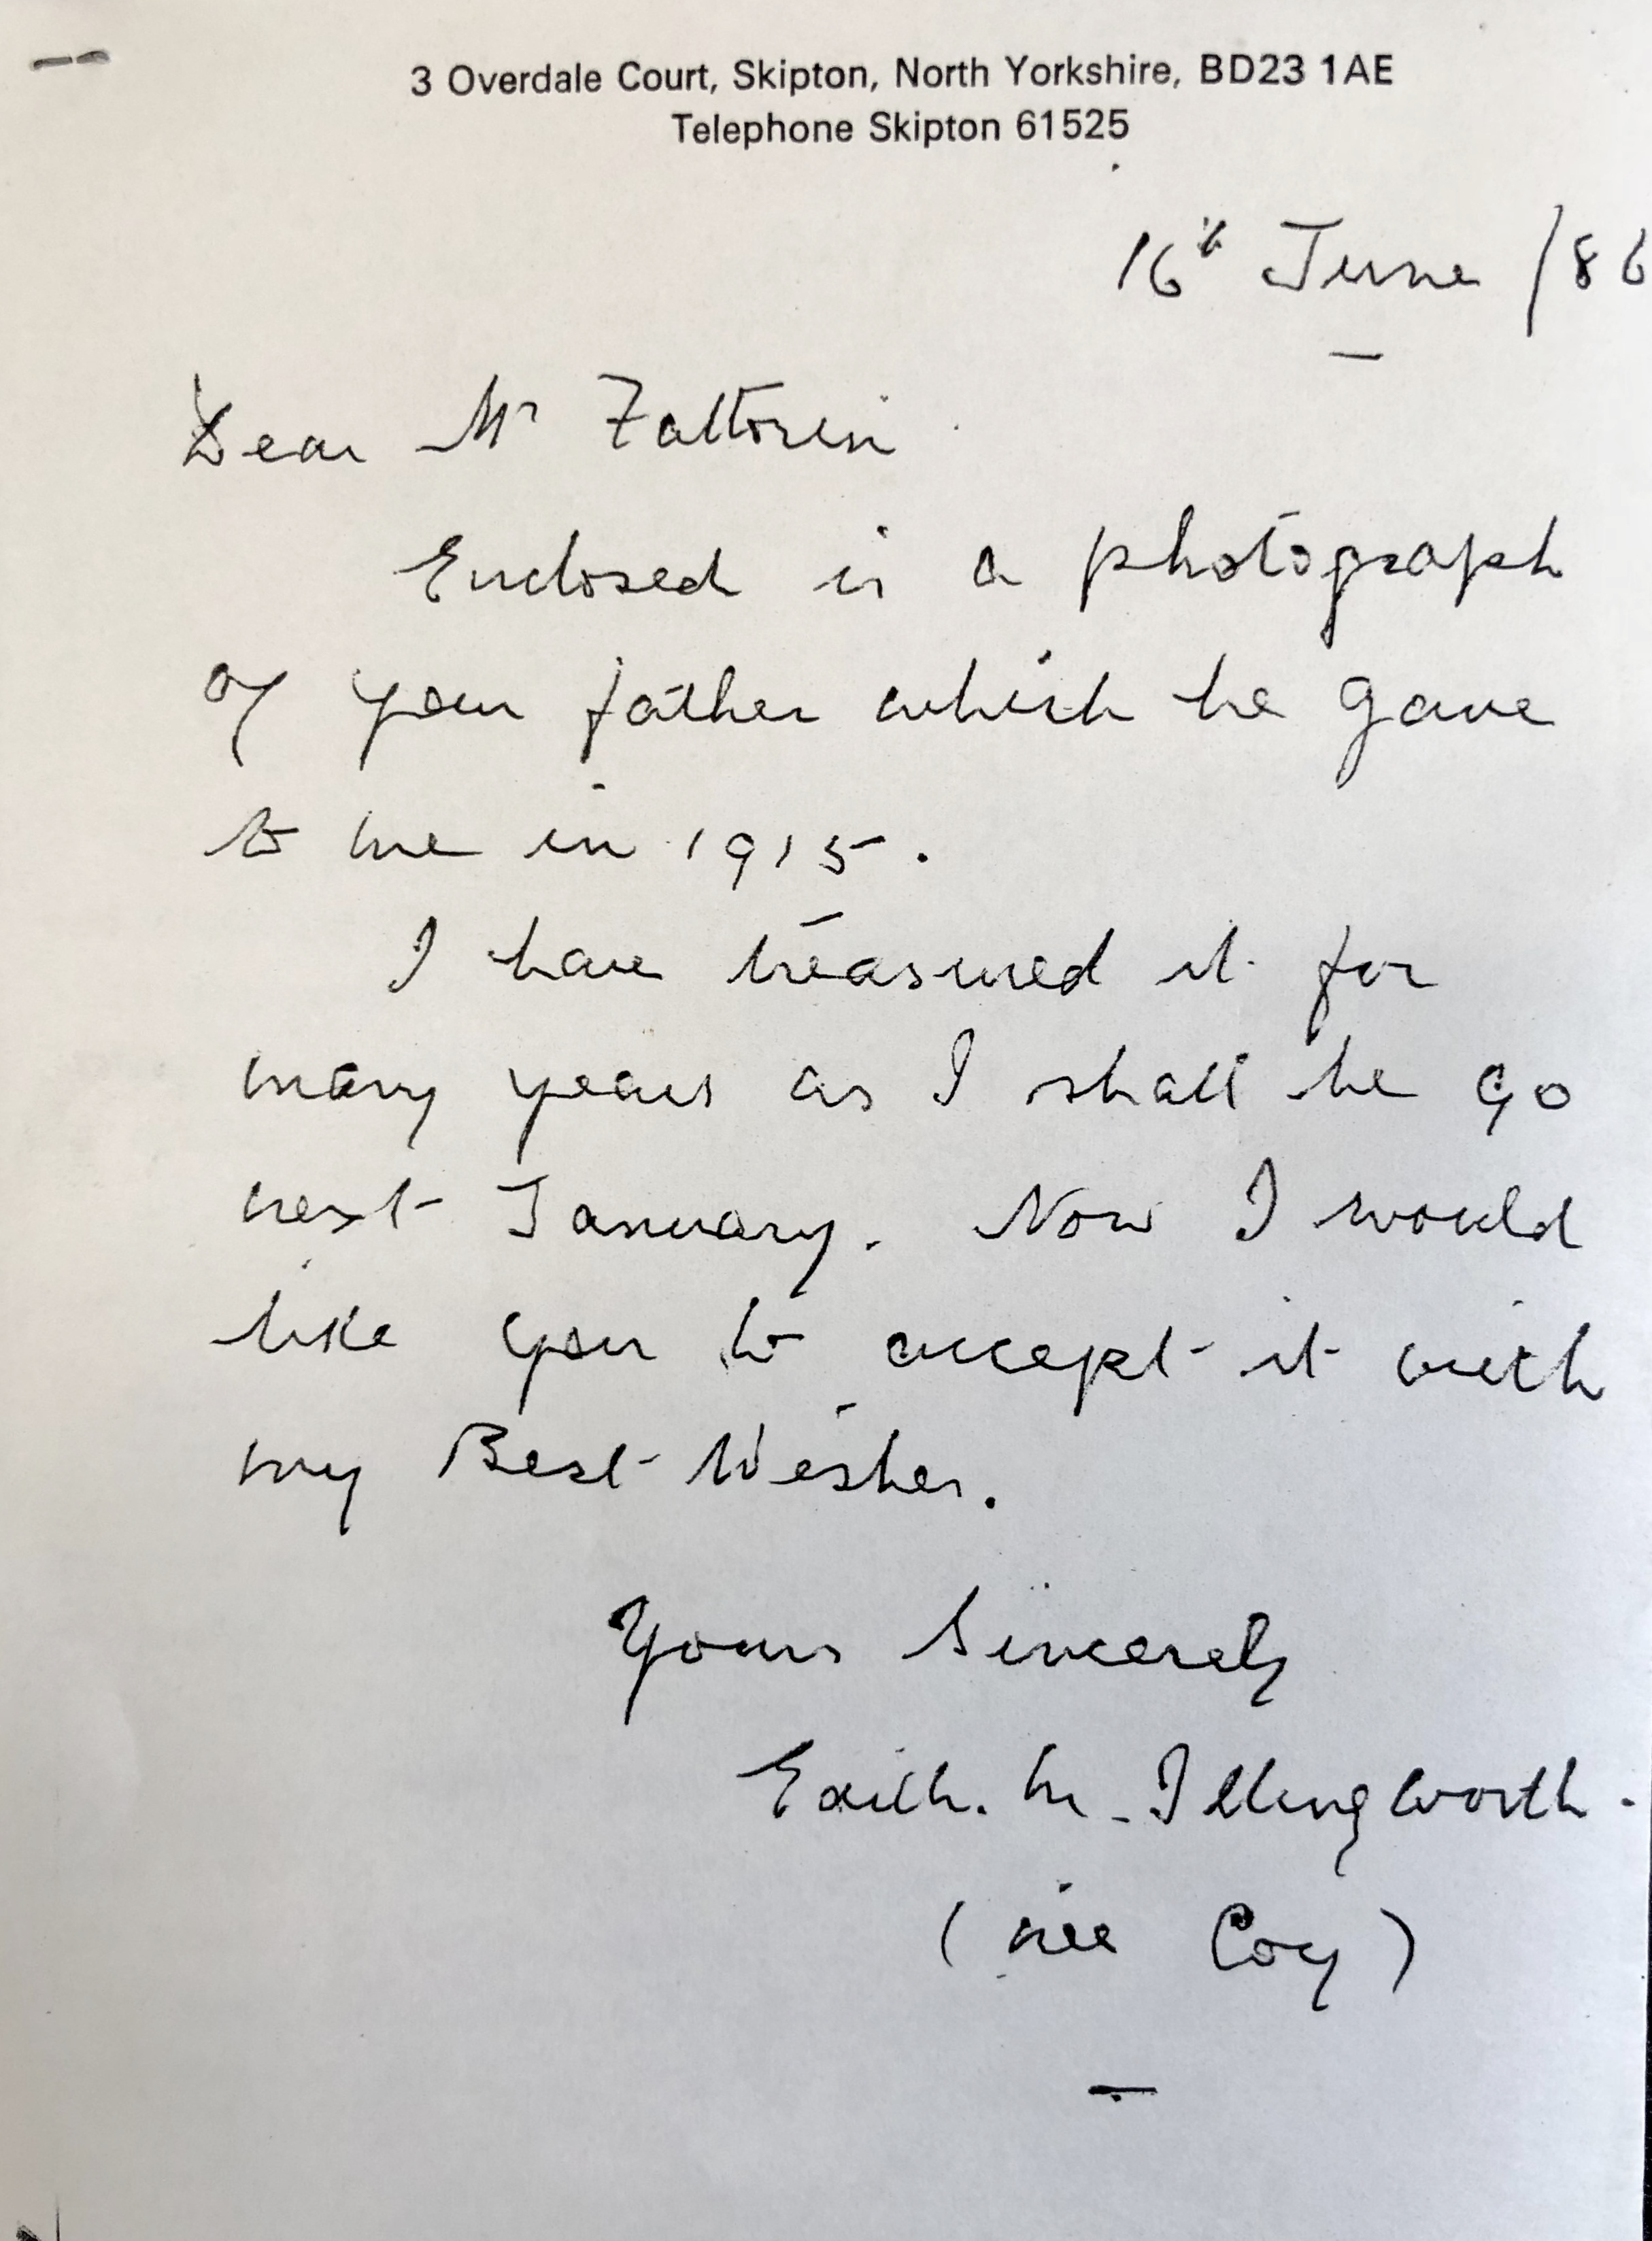 3 Overdale Court, Skipton, North Yorkshire, BD23 1AE
Telephone Skipton 61525
16th June /86
Dear Mr Fattorini
Enclosed is a photograph
of your father which he gave
to me in 1915.
I have treasured it for
many years as I shall be 90
next January. Now I would
like you to accept it with
my Best Wishes.
Yours Sincerely
Edith. M. Illingworth.
(née Coy)